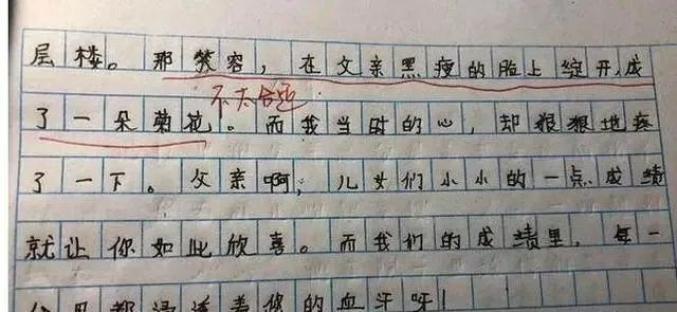 层楼。那笑容，在父亲黑瘦的脸上绽开，成
不太合适
了一朵菊花。而我当时的心，却狠狠地疼
了一下。父亲啊，儿女们小小的一点成绩
就让你如此欣喜。而我们的成绩里，每一
分里都浸透着您的血汗呀！